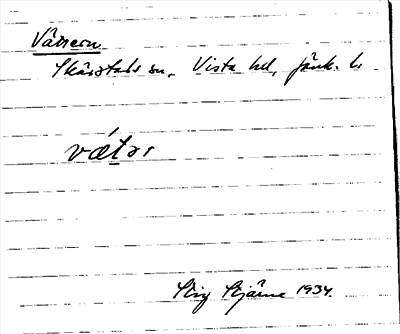 Vättern
Skärstads sn, Vista hd, Jönk. l.
vætər
Stig Stjärne 1934.